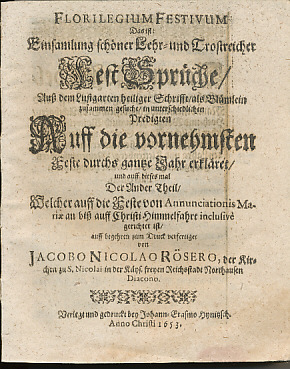 FLORILEGIUM FESTIVUM
Das ist:
Einsamlung schöner Lehr- und Trostreicher
Fest Sprüche/
Auß dem Lustgarten heiliger Schrifft/ als Blümlein
zusammen gesucht/ in unterschiedlichen
Predigten
Auff die vornehmsten
Feste durchs gantze Jahr erkläret/
und auff dieses mal
Der Ander Theil/
Welcher auff die Feste von Annunciationis Ma-
riæ an biß auff Christi Himmelfahrt inclusivè
gerichtet ist/
auff begehren zum Druck verfertiget
von
JACOBO NICOLAO RÖSERO, der Kir-
chen zu S. Nicolai in der Käys. freyen Reichsstadt Northausen
Diacono.
Verlegt und gedruckt bey Johann-Erasmo Hynitzsch.
Anno Christi 1653.